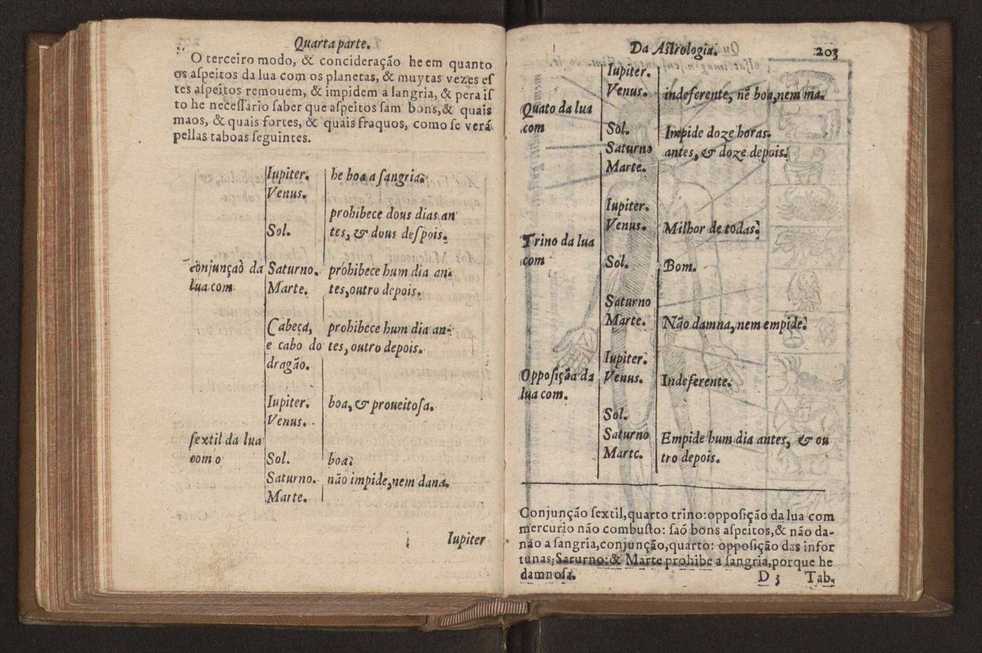 Quarta parte.
O terceiro modo, & concideração he em quanto
os aspeitos da lua com os planetas, & muytas vezes es
tes aspeitos remouem, & impidem a sangria, & pera is
to he necessario saber que aspeitos sam bons, & quais
maos, & quais fortes, & quais fraquos, como se verá
pellas taboas seguintes.
Iupiter. he boa a sangria.
Venus.
prohibece dous dias an
Sol. tes, & dous despois.
conjunçaõ da Saturno. prohibece hum dia an-
lua com Marte. tes, outro depois.
Cabeça, prohibece hum dia an-
e cabo do tes, outro depois.
dragão.
Iupiter. boa, & proueitosa.
Venus.
sextil da lua
com o Sol. boa.
Saturno. não impide, nem dana.
Marte.
Iupiter
Da Astrologia. 203
Iupiter.
Venus. indeferente, nẽ boa, nem ma.
Quato da lua
com Sol. Impide doze horas
Saturno antes, & doze depois.
Marte.
Iupiter.
Venus. Milhor de todas.
Trino da lua
com Sol. Bom.
Saturno
Marte. Não damna, nem empide.
Iupiter.
Opposiçõa da Venus. Indeferente.
lua com.
Sol.
Saturno Empide hum dia antes, & ou
Marte. tro depois.
Conjunção sextil, quarto trino: opposição da lua com
mercurio não combusto: saõ bons aspeitos, & não da-
não a sangria, conjunção, quarto: opposição das infor
tunas, Saturno: & Marte prohibe a sangria, porque he
damnosa. D 3 Tab.